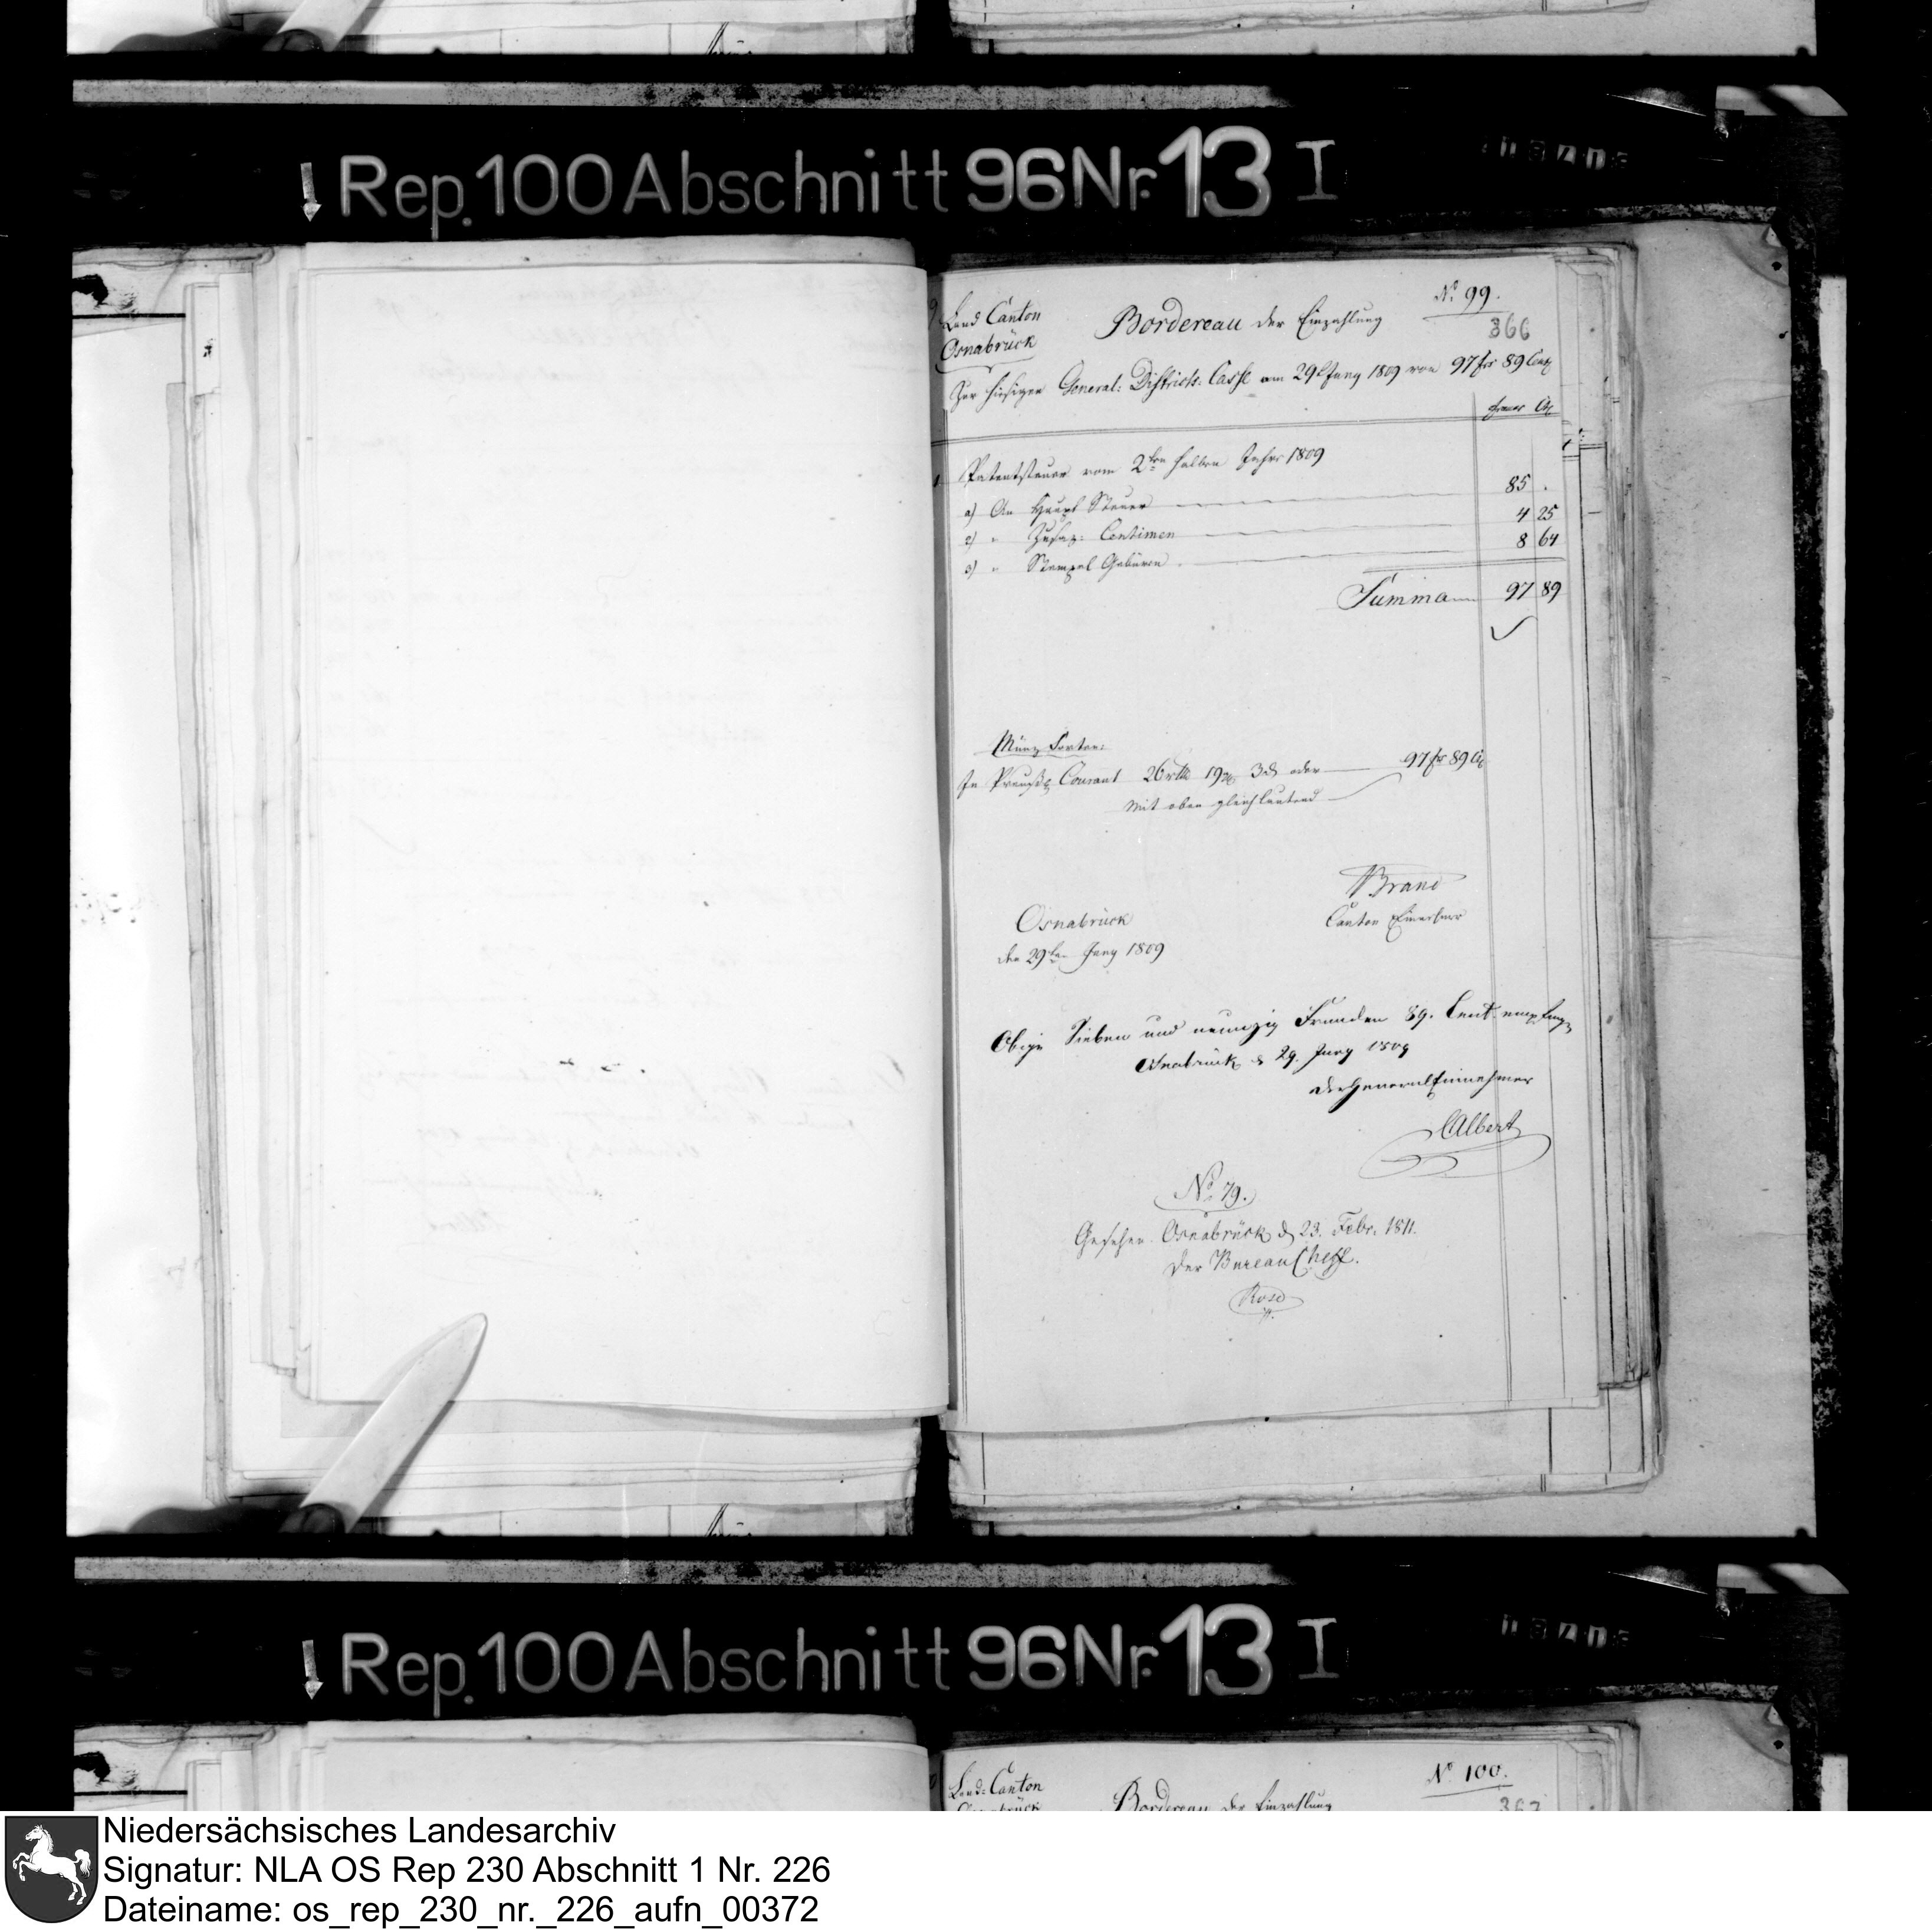 ↓ Rep. 100 Abschnitt 96 Nr. 13 I
Land Canton
Osnabrück
Bordereau der Einzahlung
No 99.
366
Zur hiesigen General: Districts: Casse am 29t Juny 1809 von 97 frs 89 Cent
Patentsteuer vom 2ten halben Jahre 1809
a) An Haupt Steuer 85 .
2) " Zusaz: Centimen 4 25
3) " Stempel Gebüren 8 64
Summa 97 89
Münz Sorten:
In Preuß. Courant 26 rtlr 19 3 oder 97 frs 89
mit oben gleichlautend
Brand
Canton Einnehmer
Osnabrück
den 29ten Juny 1809
Obige Sieben und neunzig Franken 89. Cent. empfangen
Osnabrück d 29. Juny 1809
der General Einnehmer
Albert
No 79.
Gesehen Osnabrück d 23. Febr. 1811.
Der Bureau Cheff.
Rose
↓ Rep. 100 Abschnitt 96 Nr. 13 I
Land: Canton
Bordereau der Einzahlung
No 100.
367
Niedersächsisches Landesarchiv
Signatur: NLA OS Rep 230 Abschnitt 1 Nr. 226
Dateiname: os_rep_230_nr._226_aufn_00372